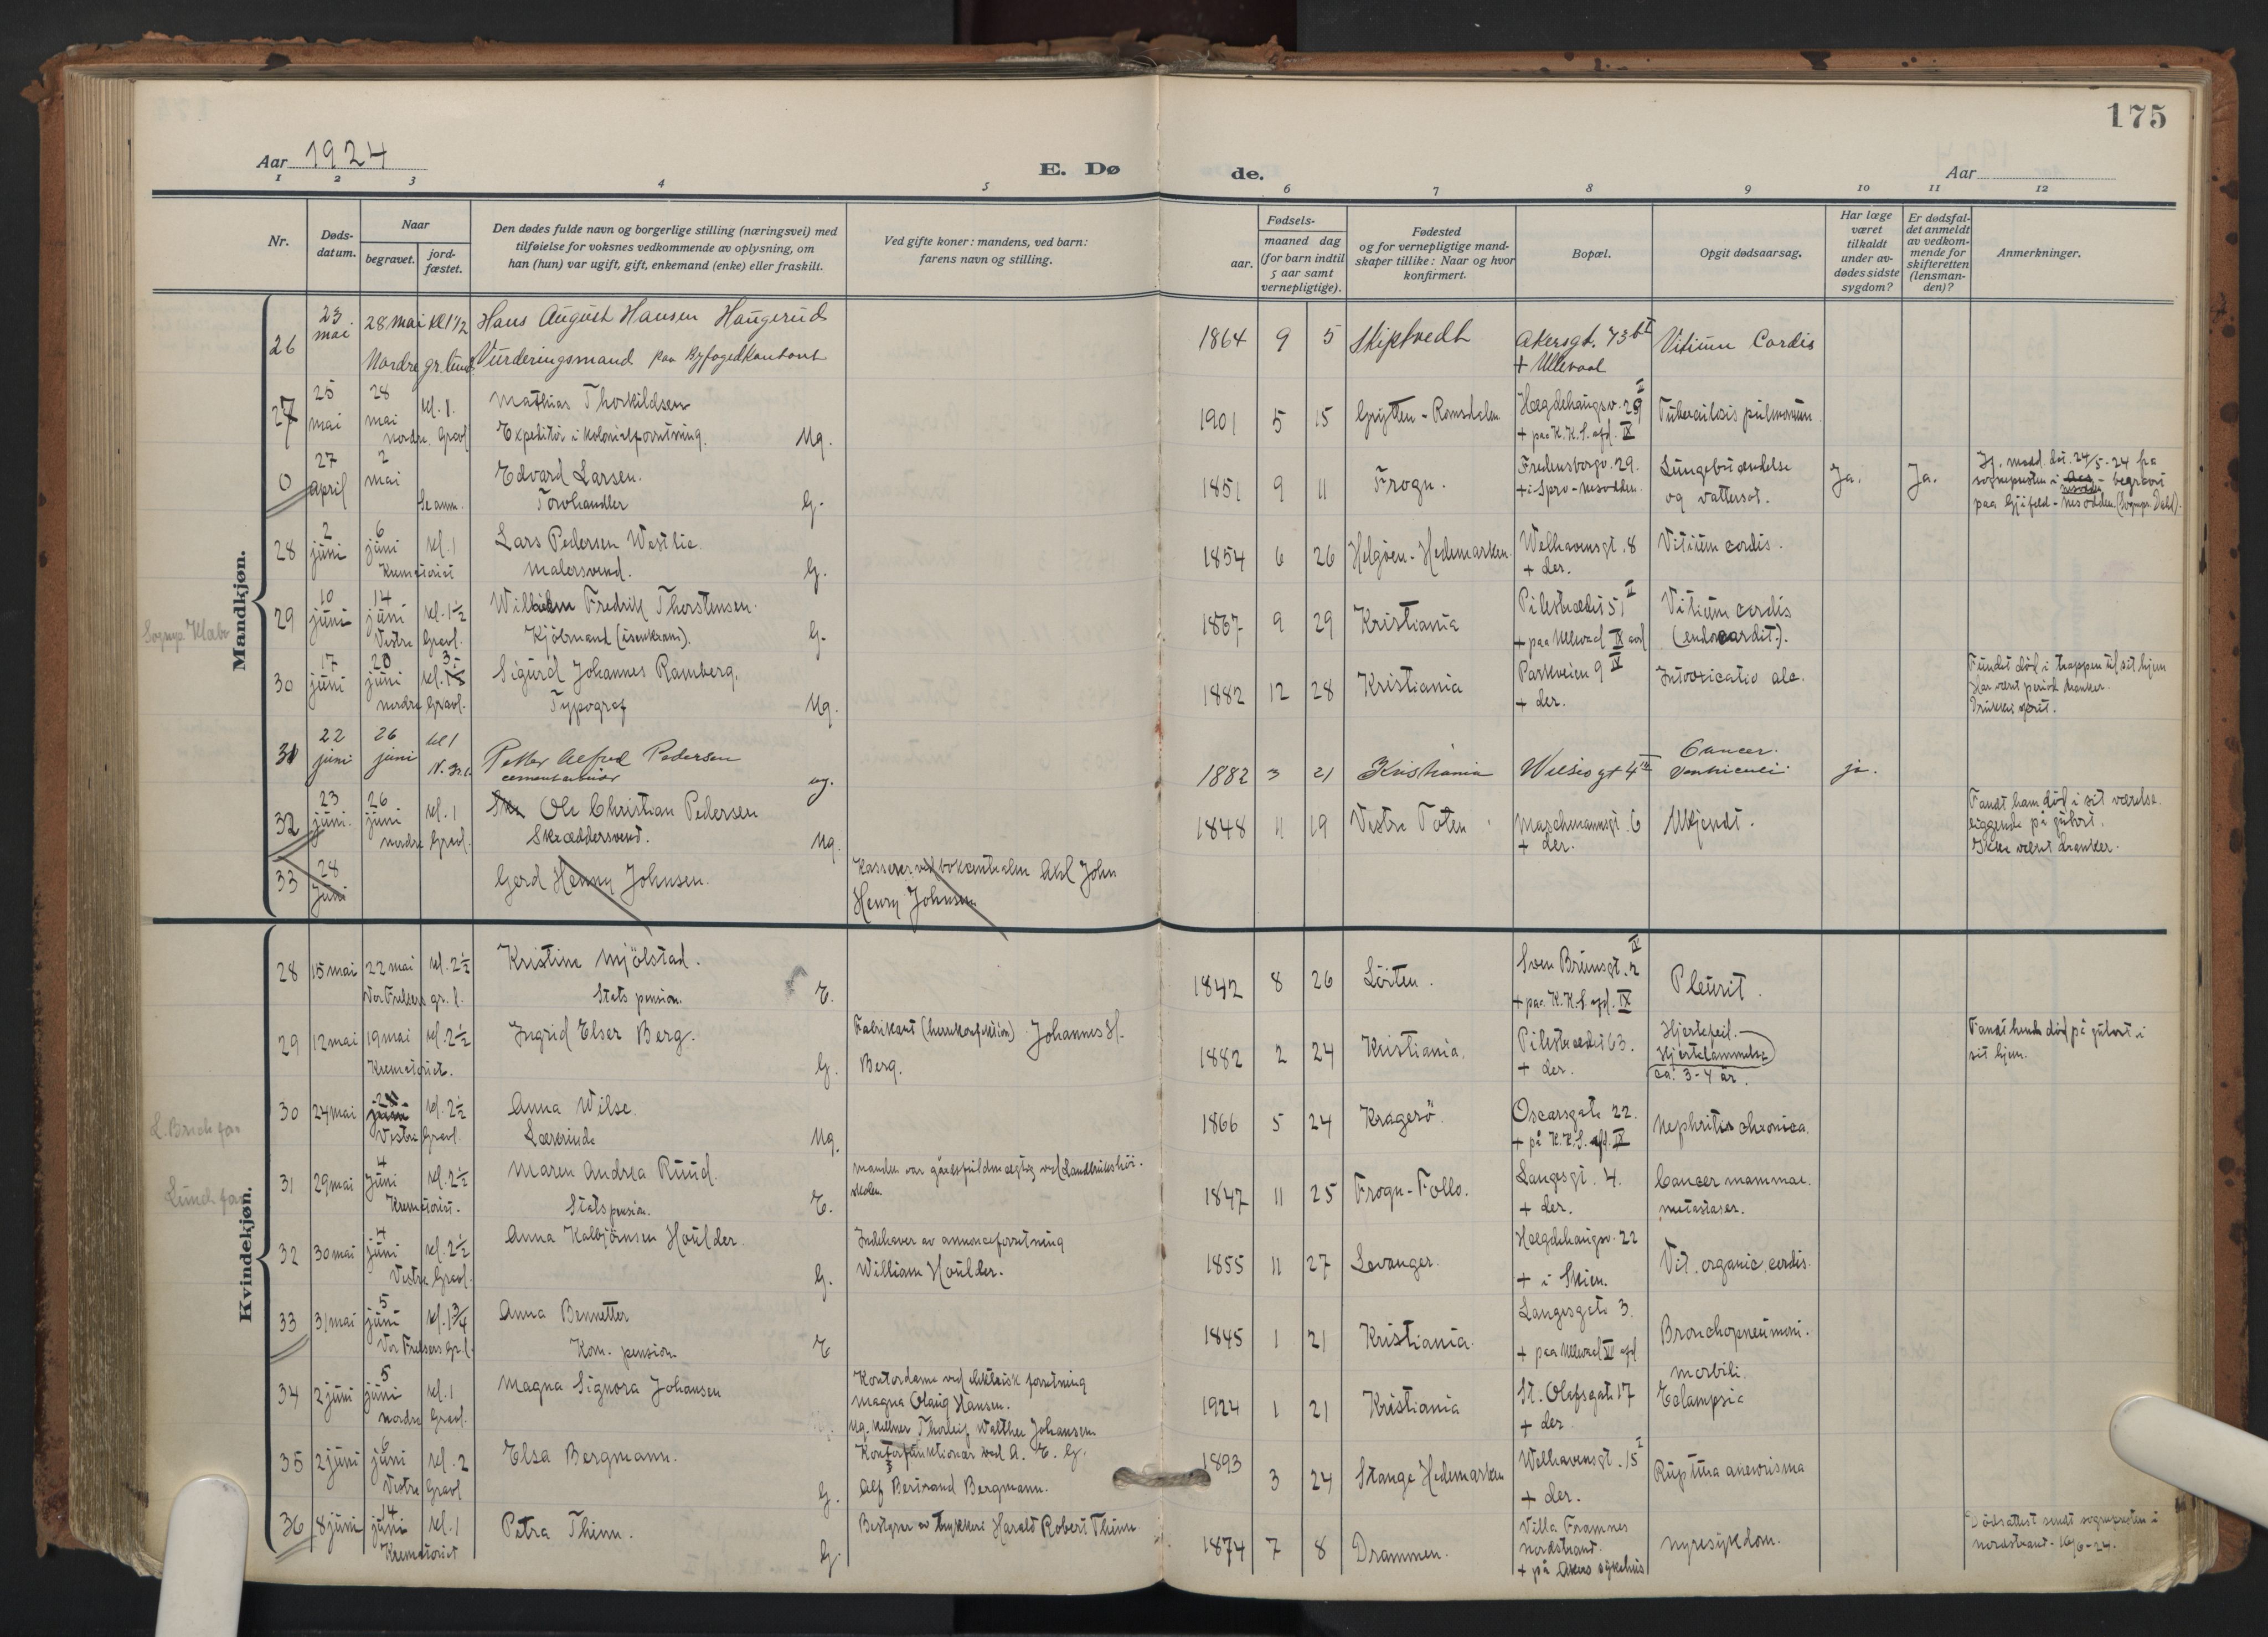 175
Aar 1924
E. Dø
de.
Aar
1 2 3 4 5 6 7 8 9 10 11 12
Nr.
Døds-
datum.
Naar
begravet.
jord-
fæstet.
Den dødes fulde navn og borgerlige stilling (næringsvei) med
tilføielse for voksnes vedkommende av oplysning, om
han (hun) var ugift, gift, enkemand (enke) eller fraskilt.
Ved gifte koner: mandens, ved barn:
farens navn og stilling.
Fødsels-
aar.
maaned dag
(for barn indtil
5 aar samt
vernepligtige).
Fødested
og for vernepligtige mand-
skaper tillike: Naar og hvor
konfirmert.
Bopæl.
Opgit dødsaarsag.
Har læge
været
tilkaldt
under av-
dødes sidste
sygdom?
Er dødsfal-
det anmeldt
av vedkom-
mende for
skifteretten
(lensman-
den)?
Anmerkninger.
Mandkjøn.
26 23 mai 28 mai kl 1½ Hans August Hansen Haugerud 1864 9 5 Skiptvedt Akersgt. 73 b I Vitium Cordis
Nordre gr. lund Vurderingsmand paa Byfogedkontoret + Ullevaal
27 25 mai 28 mai kl. 1. Mathias Thorkildsen 1901 5 15 Grytten - Romsdalen Hægdehaugsv. 29 II Tuberculosis pulmonum
nordre Gravl Expeditör i kolonialforretning. Ug. + paa K.K.S. afd. IX
0 27 april 2 mai Edvard Larsen. 1851 9 11 Frogn. Fredensborgv. 29. Lungebetændelse Ja. Ja. Hj. medd. dat. 24/5-24 fra
Se anm. Torvhandler G. + i Spro - nesodden og vattersot. sogneprsten i nesodden - begravet
paa Gjøfeld - nesodden (Sognepr. Dahl).
28 2 juni 6 juni kl. 1 Lars Pedersen Westlie. 1854 6 26 Helgöen - Hedemarken. Welhavensgt. 8 Vitium cordis.
Krematoriet malersvend. G. + der.
Sognepr. Klabo
29 10 juni 14 juni kl. 1½ Wilhelm Fredrik Thorstensen. 1867 9 29 Kristiania Pilestrædet 51 II Vitium cordis
Vestre Gravl. Kjöbmand (isenkram). G. + paa Ullevaal IX avd (endocardit.).
30 17 juni 20 juni kl. Sigurd Johannes Ramberg. 1882 12 28 Kristiania Parkveien 9 IV Intoxicatio alc. Fundet död i trappen til sit hjem
nordre Gravl. Typograf Ug. + der. Har været periode dranker.
Drukket sprit.
31 22 juni 26 juni kl 1 Petter Alfred Pedersen 1882 3 21 Kristiania Wessels gt 4 IV Cancer ja.
N. gr.l. cementarbeider ug. Ventriculi
32 23 juni. 26 juni kl. 1 Ole Christian Pedersen 1848 11 19 Vestre Toten Maschmannsgt. 6 Ukjendt. Fandt ham död i sit værelse.
nordre Gravl. Skræddersvend. Ug. + der. liggende på gulvet.
Ikke været dranker.
33 28 Juni Gerd Henny Johnsen. Kasserer ved bokcentralen Aksl John
Henry Johnsen
Kvindekjøn.
28 15 mai 22 mai kl. 2½ Kristine Mjölstad. 1842 8 26 Löiten. Sven Bruunsgt. 2 IV Pleurit.
Vor Frelsers gr. l. Stats pension. E. + paa K.K.S. afd. IX
29 12 mai 19 mai kl. 2½ Ingrid Elser Berg. Fabrikant (herrekonfektion) Johannes H. 1882 2 24 Kristiania. Pilestrædet 63. Hjertefeil. Fandt hende död på gulvet i
Krematoriet. G. Berg. + der. Hjertelammelse sit hjem.
ca. 3-4 år.
L. Bruch for
30 24 mai kl. 2½ Anna Wilse. 1866 5 24 Kragerö. Oscarsgate 22. Nephritis chronica.
Vestre Gravl. Lærerinde Ug. + på K.K.S. afd. IX
Lund for
31 29 mai 4 juni kl. 2½ Maren Andrea Ruud. manden var gårdsfuldmægtig ved Landbrukshöi- 1847 11 25 Frogn - Follo. Langesgt. 4. Cancer mammae.
Krematoriet. Stats pension. E. skolen. + der. metastaser.
32 30 mai 4 juni kl. 2½ Anna Kalbjörnsen Houlder. Indehaver av annonceforretning 1855 11 27 Levanger. Hægdehaugsv. 22 Vit. organic. cordis.
Vestre Gravl. G. William Houlder. + i Skien.
33 31 mai 5 juni kl. 1¾ Anna Bennetter 1845 1 21 Kristiania. Langesgate 3. Bronchopneumoni.
Vor Frelsers gr.l. Kom. pension E + paa Ullevaal VI afd
34 2 juni 5 juni kl. 1 Magna Signora Johansen Kontordame ved elektrisk forretning 1924 1 21 Kristiania St. Olafsgate 17 morbili.
nordre Gravl. Magna Olaug Hansen. + der Eclampsia
Ug. Kellner Thorleif Walther Johansen
35 2 juni 6 juni kl. 2 Elsa Bergmann. Kontorfunktionær ved A. E. G. 1893 3 24 Stange Hedemarken Welhavensgt. 15 I Ruptura anevrisma
Vestre Gravl G. Alf Bertrand Bergmann. + der.
36 8 juni 14 juni kl. 1 Petra Thinn. Bestyrer av trykkeri Harald Robert Thinn 1874 7 8 Drammen. Villa Framnes nyresykdom. Dödsattest sendt sogneprsten i
Krematoriet G. Nordstrand. nordstrand - 16/6-24.
+ på Akers sykehus